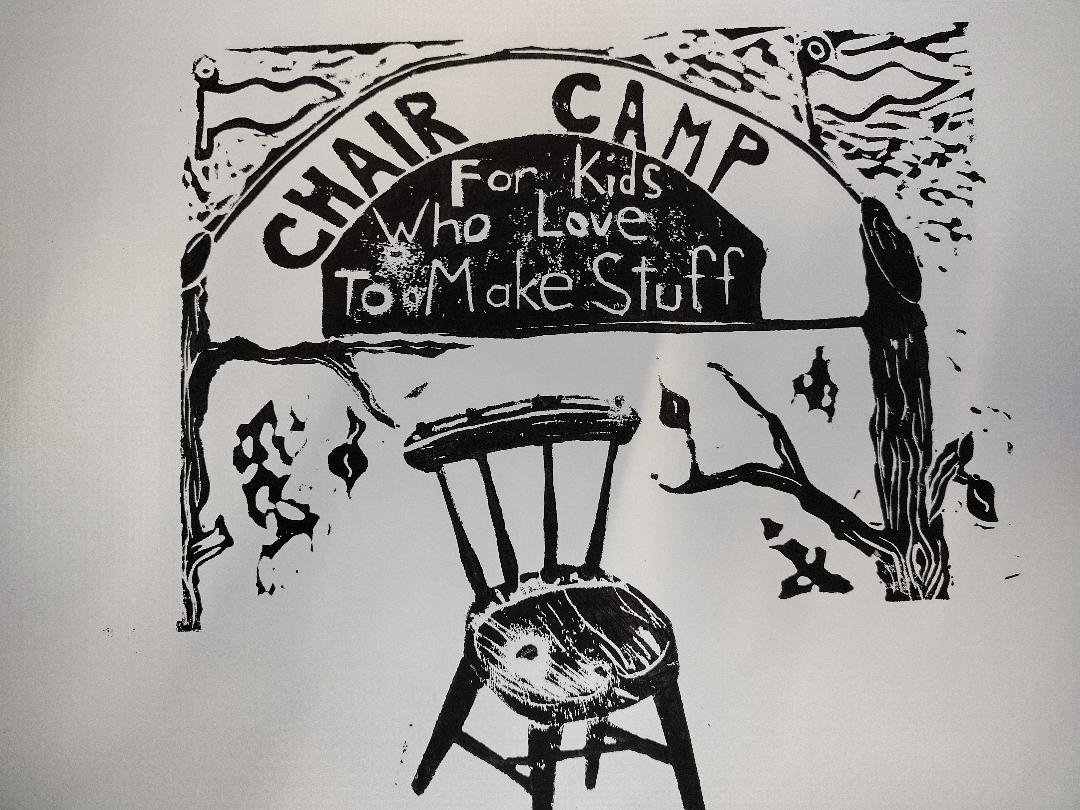 CHAIR CAMP
For Kids
Who Love
To Make Stuff